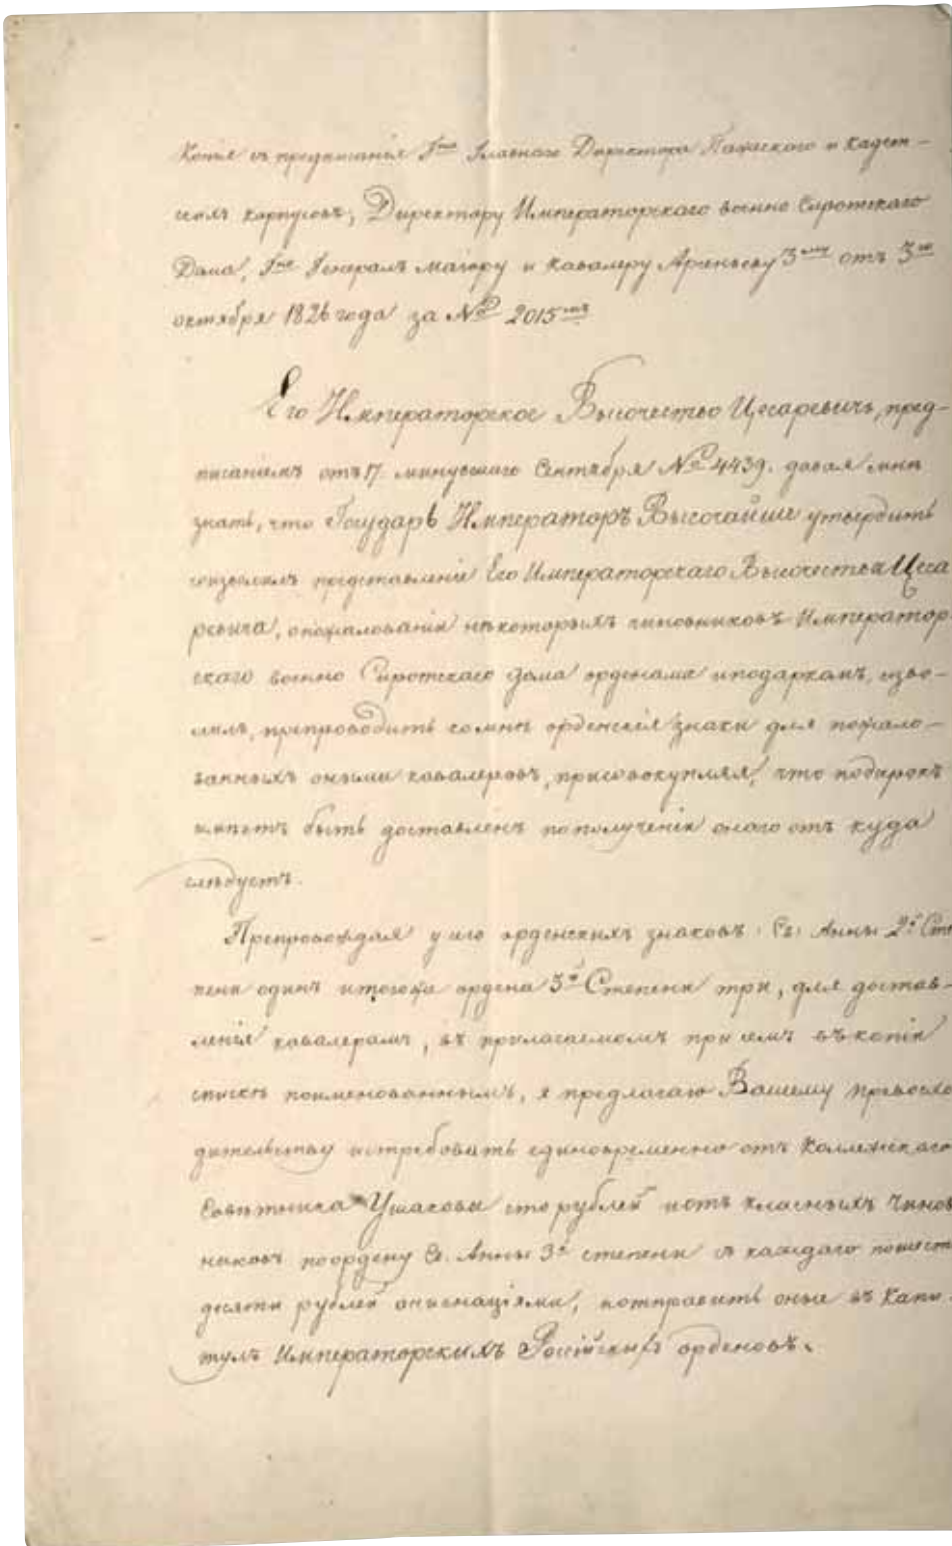 Копія съ предписанія Гна Главнаго Директора Пажескаго и Кадет-
скихъ корпусовъ, Директору Императорскаго военно Сиротскаго
Дома, Гну Генералъ Маіору и Кавалеру Арсеньеву 3му отъ 3го
октября 1826 года за № 2015мъ
Его Императорское Высочество Цесаревичь, пред-
писаніемъ отъ 17. минувшаго Сентября № 4439. давая мнѣ
знать, что Государь Императоръ Высочайше утвердить
соизволилъ представленіе Его Императорскаго Высочества Цеса
ревича, опожалованіи нѣкоторыхъ чиновниковъ Император
скаго военно Сиротскаго дома орденами иподаркомъ, изво-
лилъ, препроводить комнѣ орденскія знаки для пожало-
ванныхъ оными кавалеровъ, присовокупляя, что подарокъ
имѣетъ быть доставленъ пополученіи онаго отъ куда
слѣдуетъ.
Препровождая у сего орденскихъ знаковъ: Св: Анны 2й Сте
пени одинъ итогоже ордена 3й Степени три, для достав-
ленія кавалерамъ, въ прилагаемомъ при семъ въ копіи
спискѣ поименованнымъ, я предлагаю Вашему превосхо
дительству истребовать единовременно отъ Коллежскаго
Совѣтника Ушакова сто рублей иотъ класныхъ чинов
никовъ поордену Св. Анны 3й степени съ каждаго пошести
десяти рублей ассигнаціями, иотправить оные въ Капи-
тулъ Императорскихъ Россійскихъ орденовъ.